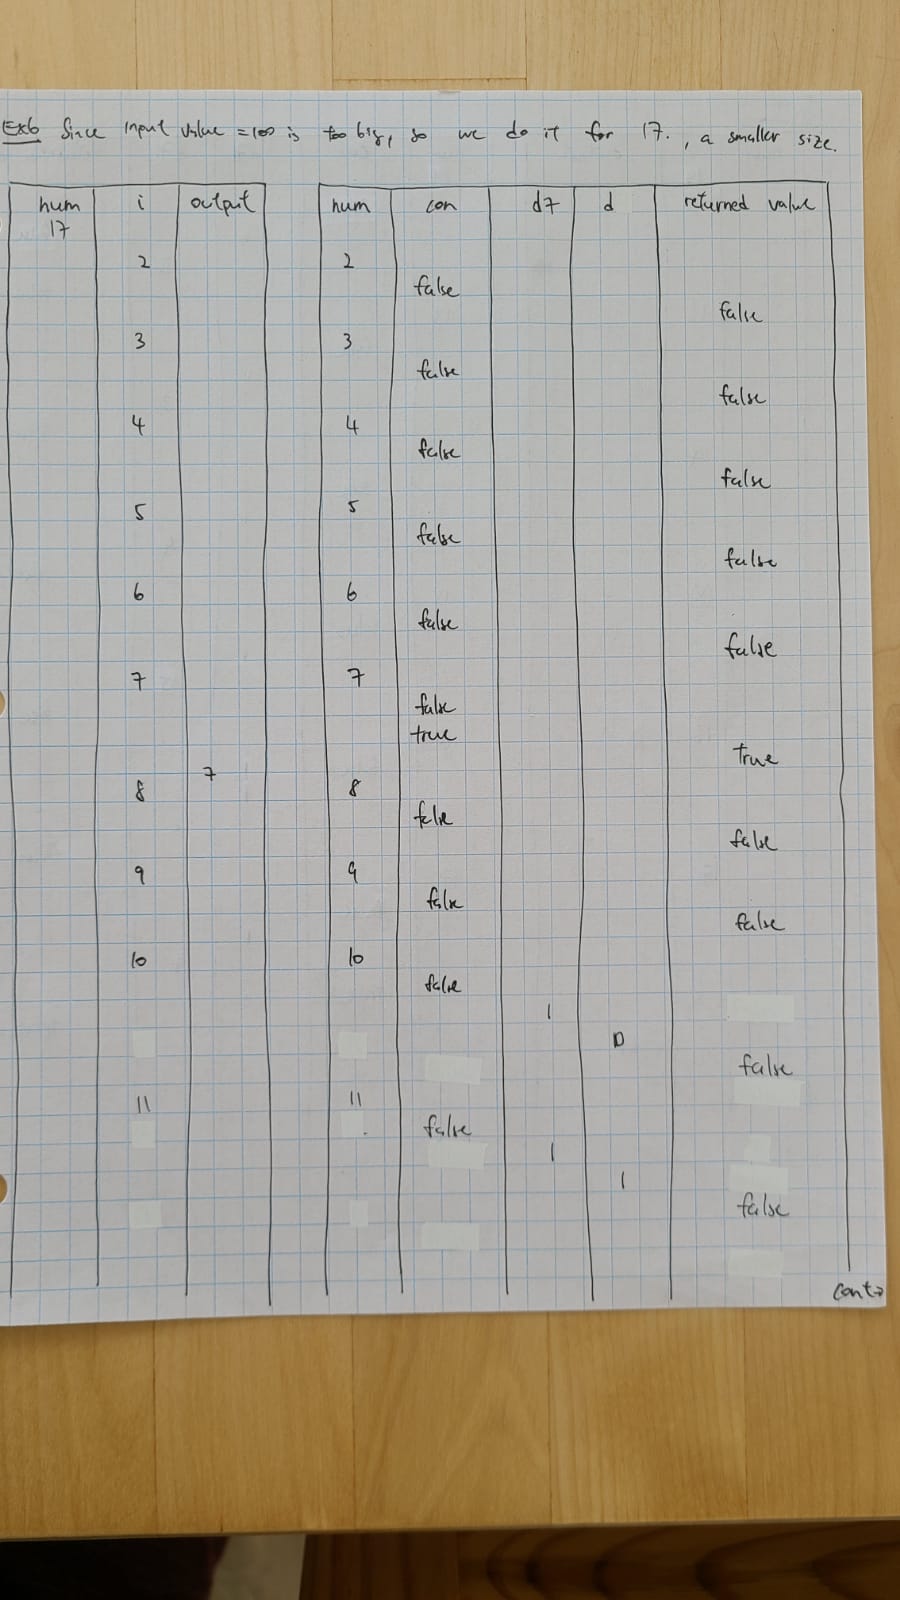 Ex6 Since input value = 100 is too big, so we do it for 17. , a smaller size.
num i output num con d7 d returned value
17
2 2
false
false
3 3
false
false
4 4
false
false
5 5
false
false
6 6
false
false
7 7
false
true
true
7
8 8
false
false
9 9
false
false
10 10
false
1
0
false
11 11
false
1
1
false